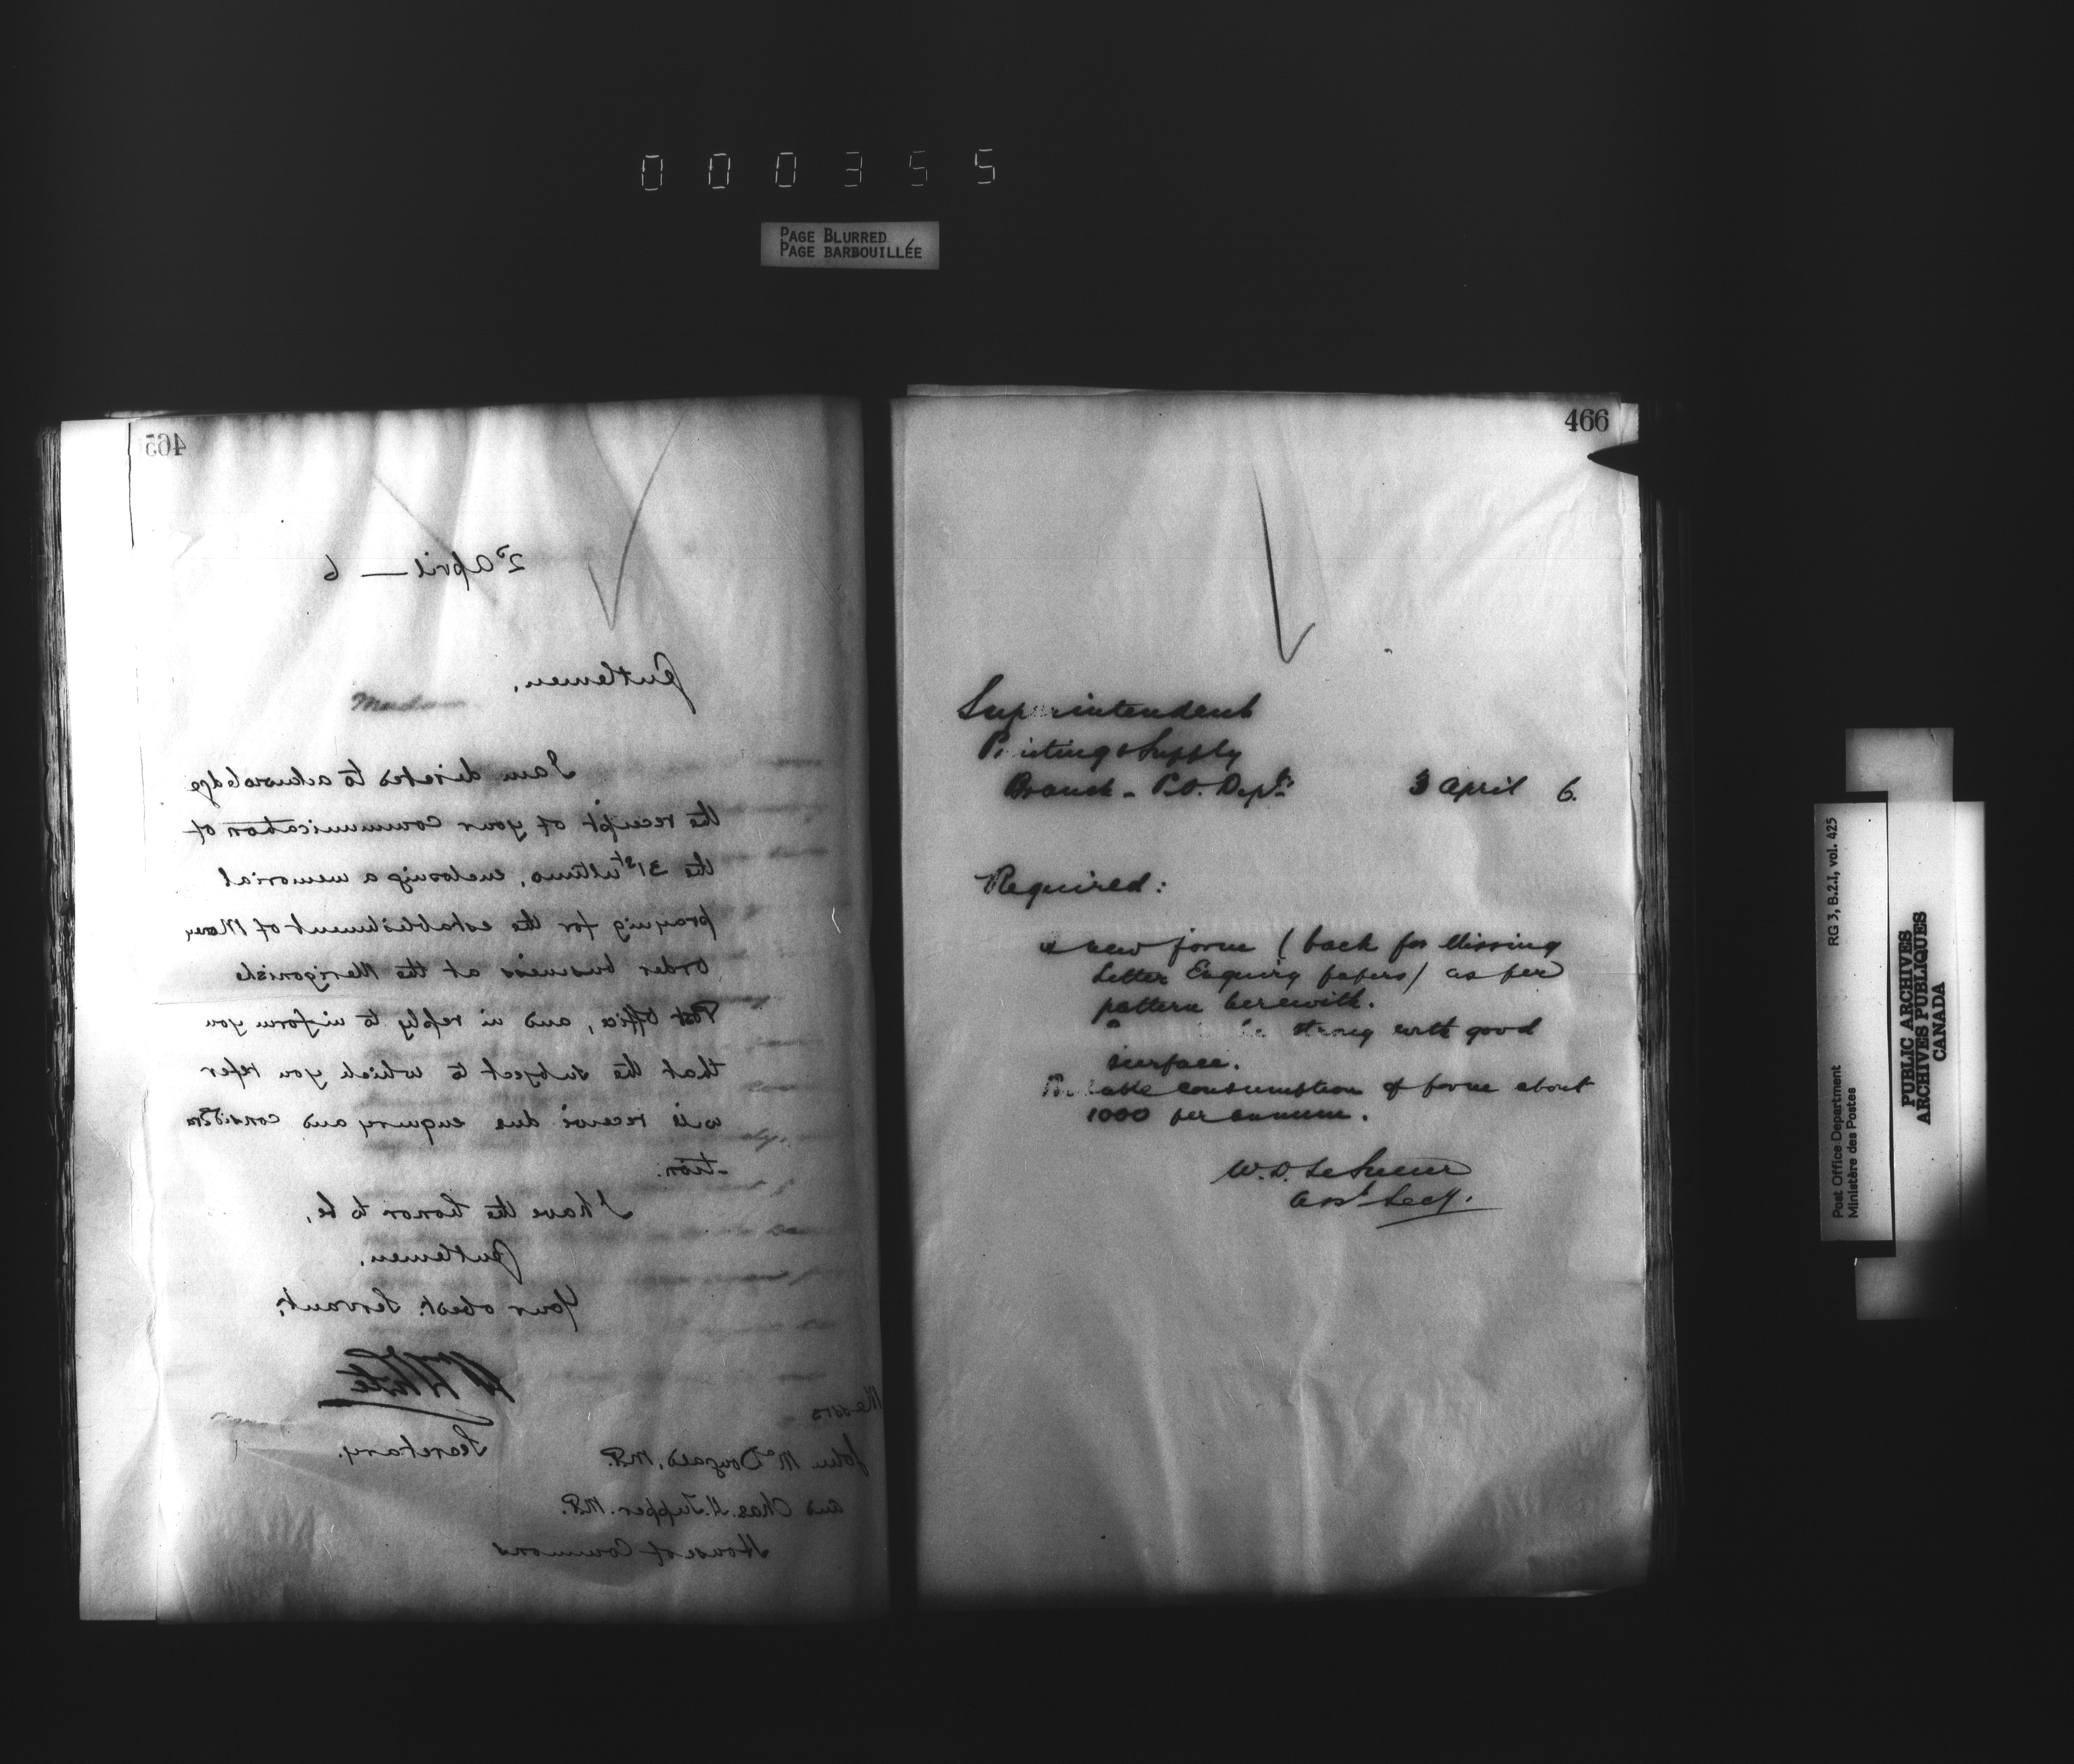 000355
PAGE BLURRED
PAGE BARBOUILLÉE
465
2d April — 6
Gentlemen,
I am directed to acknowledge
the receipt of your communication of
the 31st ultimo, enclosing a memorial
praying for the establishment of Money
order business at the Merigonishe
Post Office, and in reply to inform you
that the subject to which you refer
will receive due enquiry and considera
-tion.
I have the honor to be,
Gentlemen,
Your obedt. Servant,
W White
Secretary.
Messrs
John McDougald, M.P.
and Chas. H. Tupper. M.P.
House of Commons
466
Superintendent
Printing & Supply
Branch - P.O. Dept.
3 April 6.
Required:
a new form ( back for Missing
Letter Enquiry papers) as per
pattern herewith.
strong with good
surface.
Probable consumption of form about
1000 per annum.
W.D. LeSueur
Asst Secy.
Post Office Department
Ministère des Postes
RG 3, B.2.I, vol. 425
PUBLIC ARCHIVES
ARCHIVES PUBLIQUES
CANADA